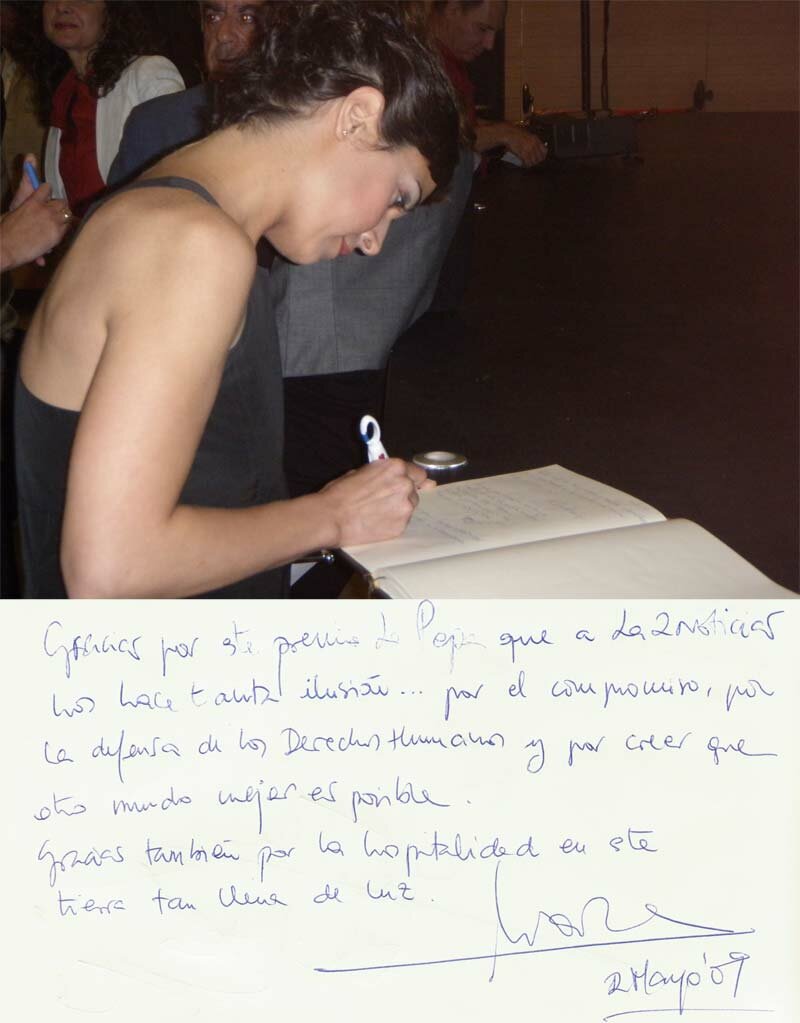 Gracias por este premio La Pepa que a La2Noticias
nos hace tanta ilusión... por el compromiso, por
la defensa de los Derechos Humanos y por creer que
otro mundo mejor es posible.
Gracias también por la hospitalidad en este
tierra tan llena de luz.
2 Mayo'09